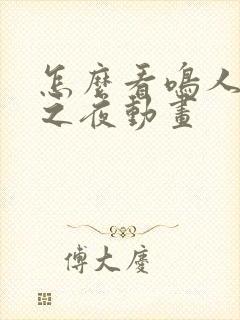 怎麼看鳴人
之夜動畫
傅大慶